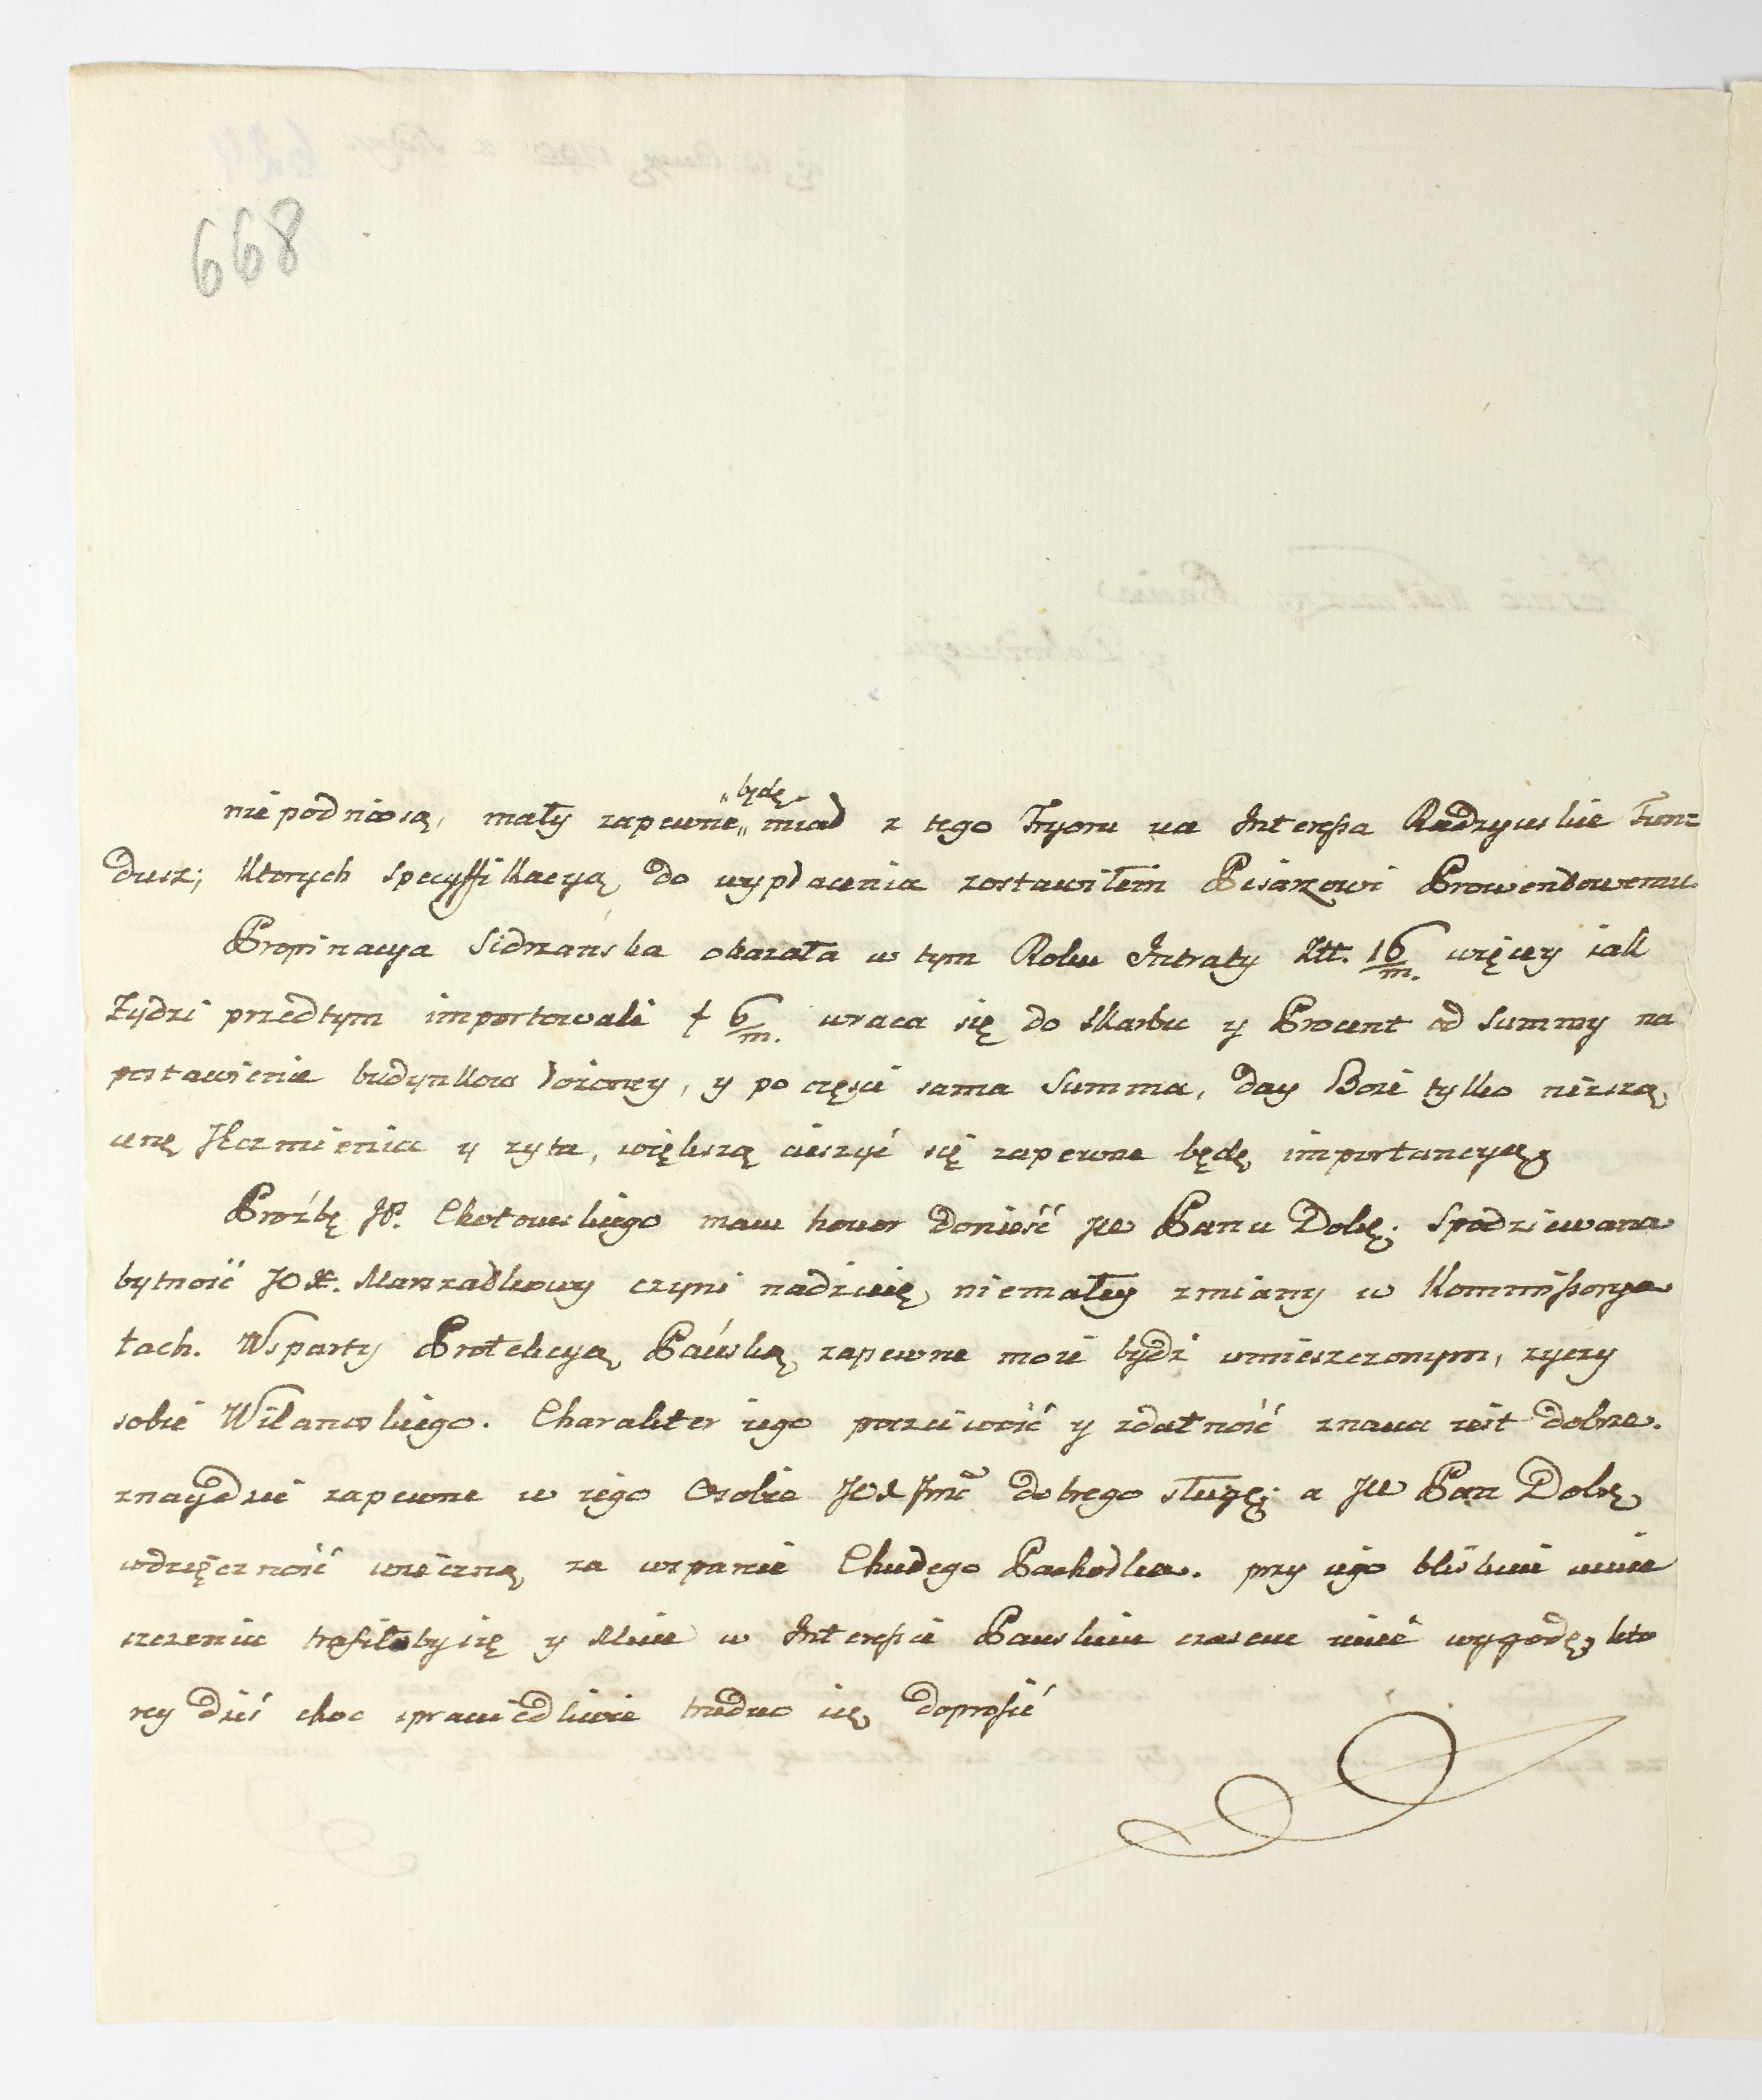 668
nie podniosą, mały zapewne „będę„ miał z tego Fryoru na Interessa Radzyńskie Fun=
dusz; Ktorych specyffikacyą do wypłacenia zostawiłem Pisarzowi Prowentowemu.
Propinacya Sidrzańska okazała w tym Roku Intraty Złł. 16/m. więcey iak
Żydzi przedtym importowali f 6/m. wraca się do Skarbu y Procent od Summy na
postawienie budynkow łożoney, y po części sama Summa, day Boże tylko niższą
cenę Jęczmienia y zyta, większą cieszyć się zapewne będę importancyą.
Proźbę JP. Chotowskiego mam honor donieść JW Panu Dobę. Spodziewana
bytność JOX. Marszałkowy czyni nadzieię niemałey zmiany w Kommissorya
tach. Wsparty Protekcyą Pańską zapewne może bydz umieszczonym, zyczy
sobie Wilanowskiego. Charakter iego poczciwość y zdatność znana iest dobrze.
znaydzie zapewne w iego Osobie JOX Jmć dobrego sługę; a JW Pan Dobę
wdzięczność wieczną za wsparcie Chudego Pachołka. przy iego bliskim umie
szczeniu trafiłoby się y Mnie w Interessie Pańskim czasem mieć wygodę, kto
rey dziś choc sprawiedliwie trudno się doprosić